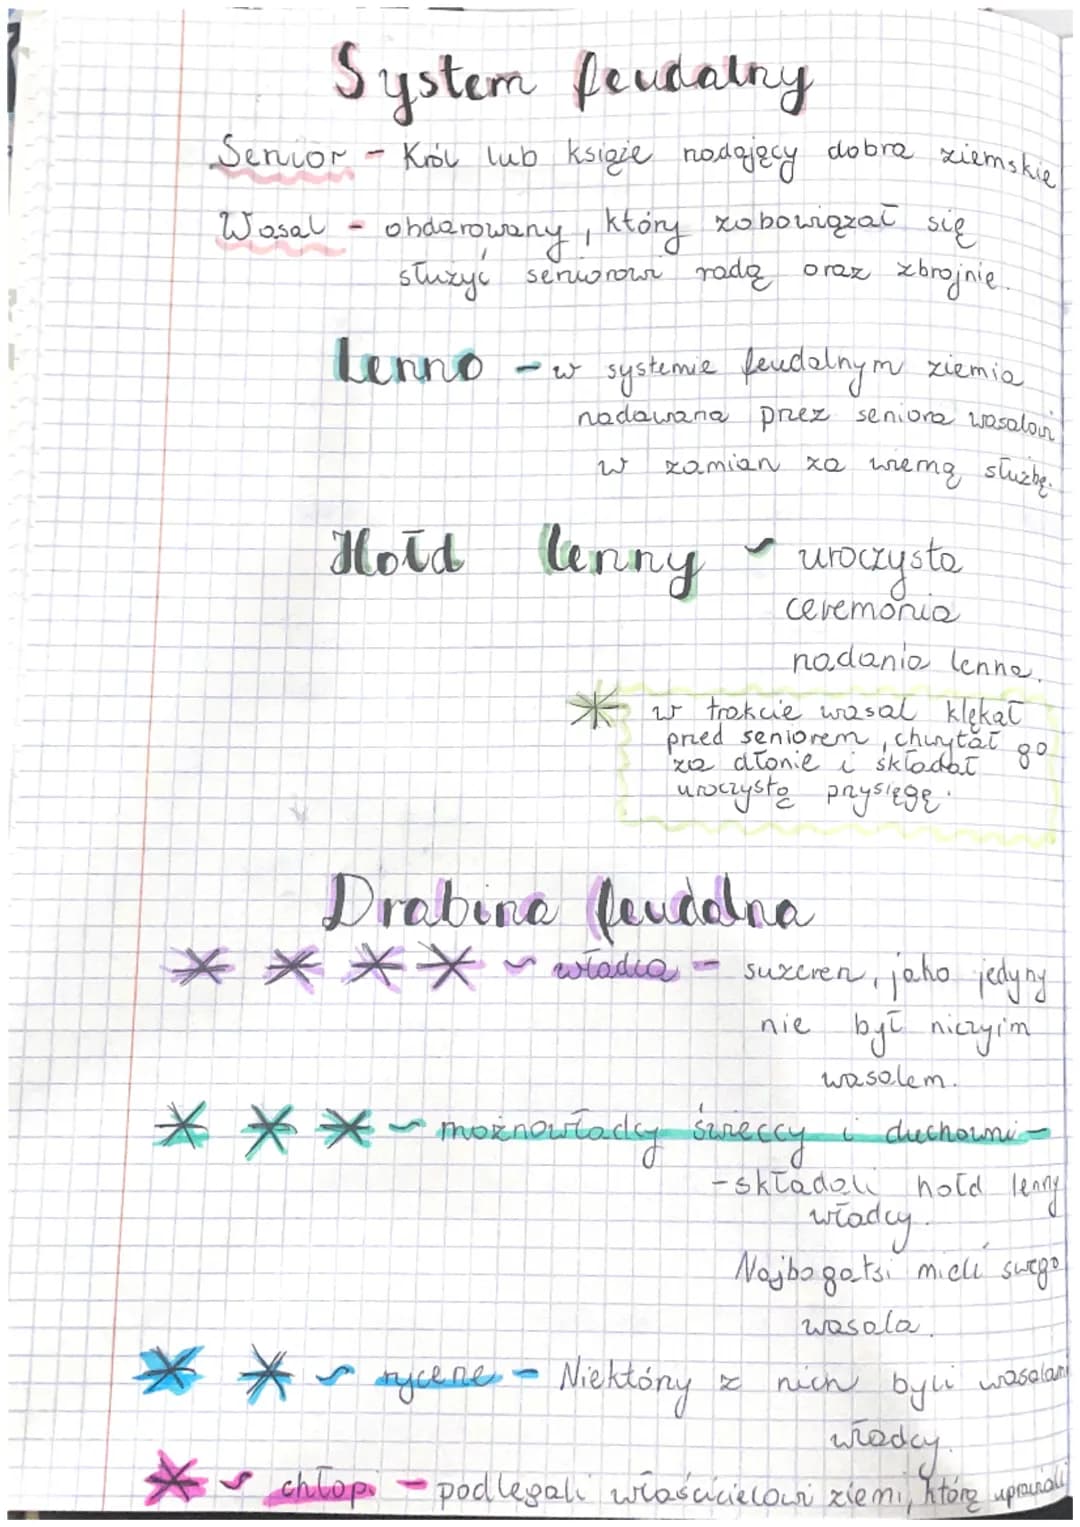 System feudalny
Senior - Król lub książe nadający dobra ziemskie
Wasal - obdarowany, który zobowiązał się
służyć seniorowi radą oraz zbrojnie.
Lenno - w systemie feudalnym ziemia
nadawana przez seniora wasalowi
w zamian za wierną służbę.
Hołd lenny - uroczysta
ceremonia
nadania lenna.
* w trakcie wasal klękał
przed seniorem, chwytał go
za dłonie i składał
uroczystą przysięgę.
Drabina feudalna
* * * * ~ władca - suzeren, jako jedyny
nie był niczyim
wasalem.
* * * ~ możnowładcy świeccy i duchowni -
- składali hołd lenny
władcy.
Najbogatsi mieli swego
wasala.
* * ~ rycerze - Niektórzy z nich byli wasalami
władcy.
* ~ chłopi - podlegali właścicielowi ziemi, którą uprawiali